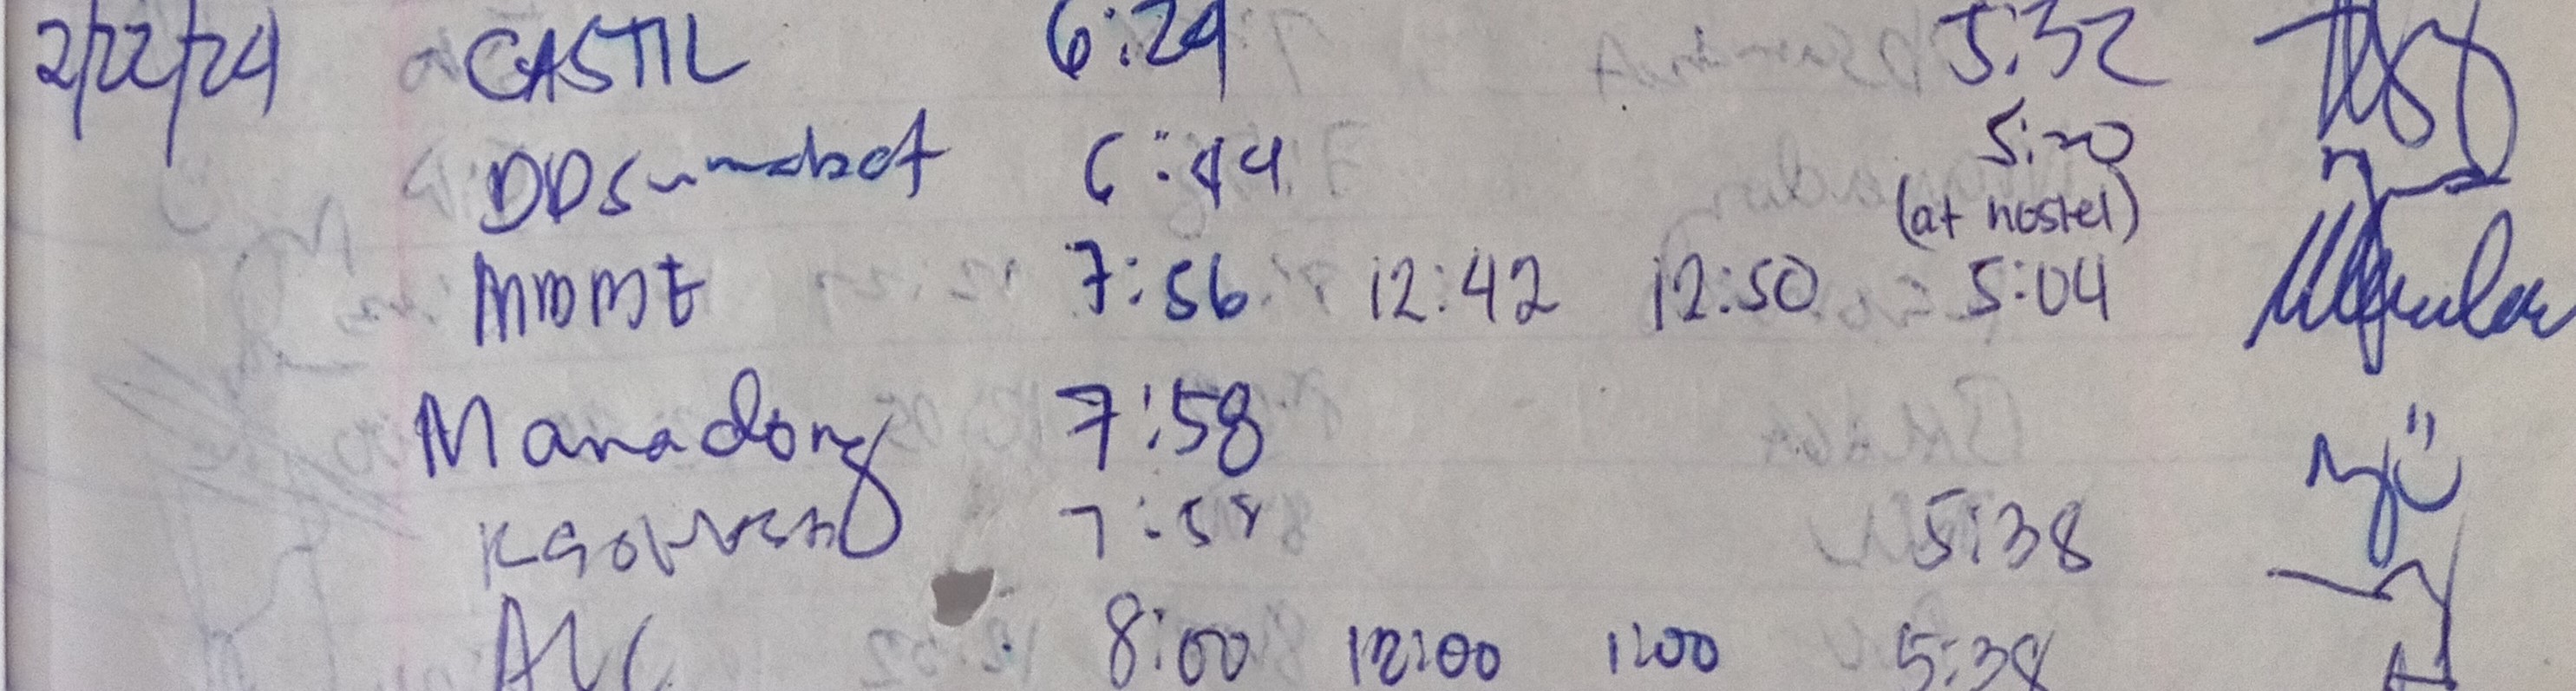 2/22/24 CASTIL 6:24 5:32
DDSumabat 6:44 5:20
(at hostel)
7:56 12:42 12:50 5:04
Manadong 7:58
7:58 5:38
8:00 12:00 1:00 5:38